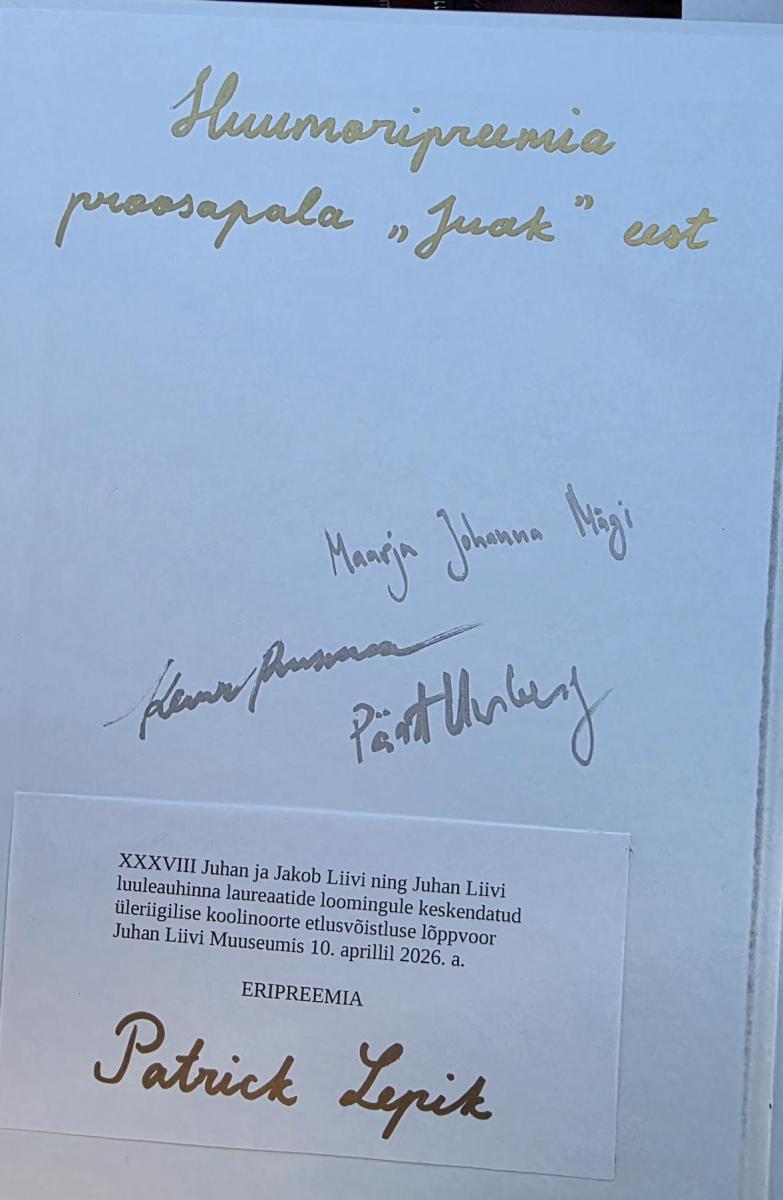 Huumoripreemia
proosapala „Juak” eest
Maarja Johanna Mägi
Pärt Uusberg
XXXVIII Juhan ja Jakob Liivi ning Juhan Liivi
luuleauhinna laureaatide loomingule keskendatud
üleriigilise koolinoorte etlusvõistluse lõppvoor
Juhan Liivi Muuseumis 10. aprillil 2026. a.
ERIPREEMIA
Patrick Lepik